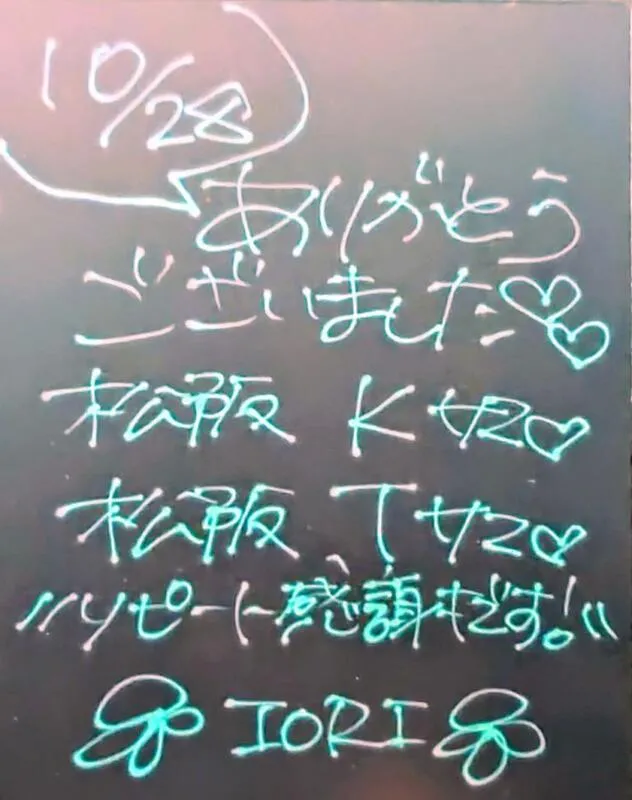 10/28
ありがとう
ございました♡♡
松阪 Kサン♡
松阪 Tサン♡
〃リピート感謝です!〃
IORI